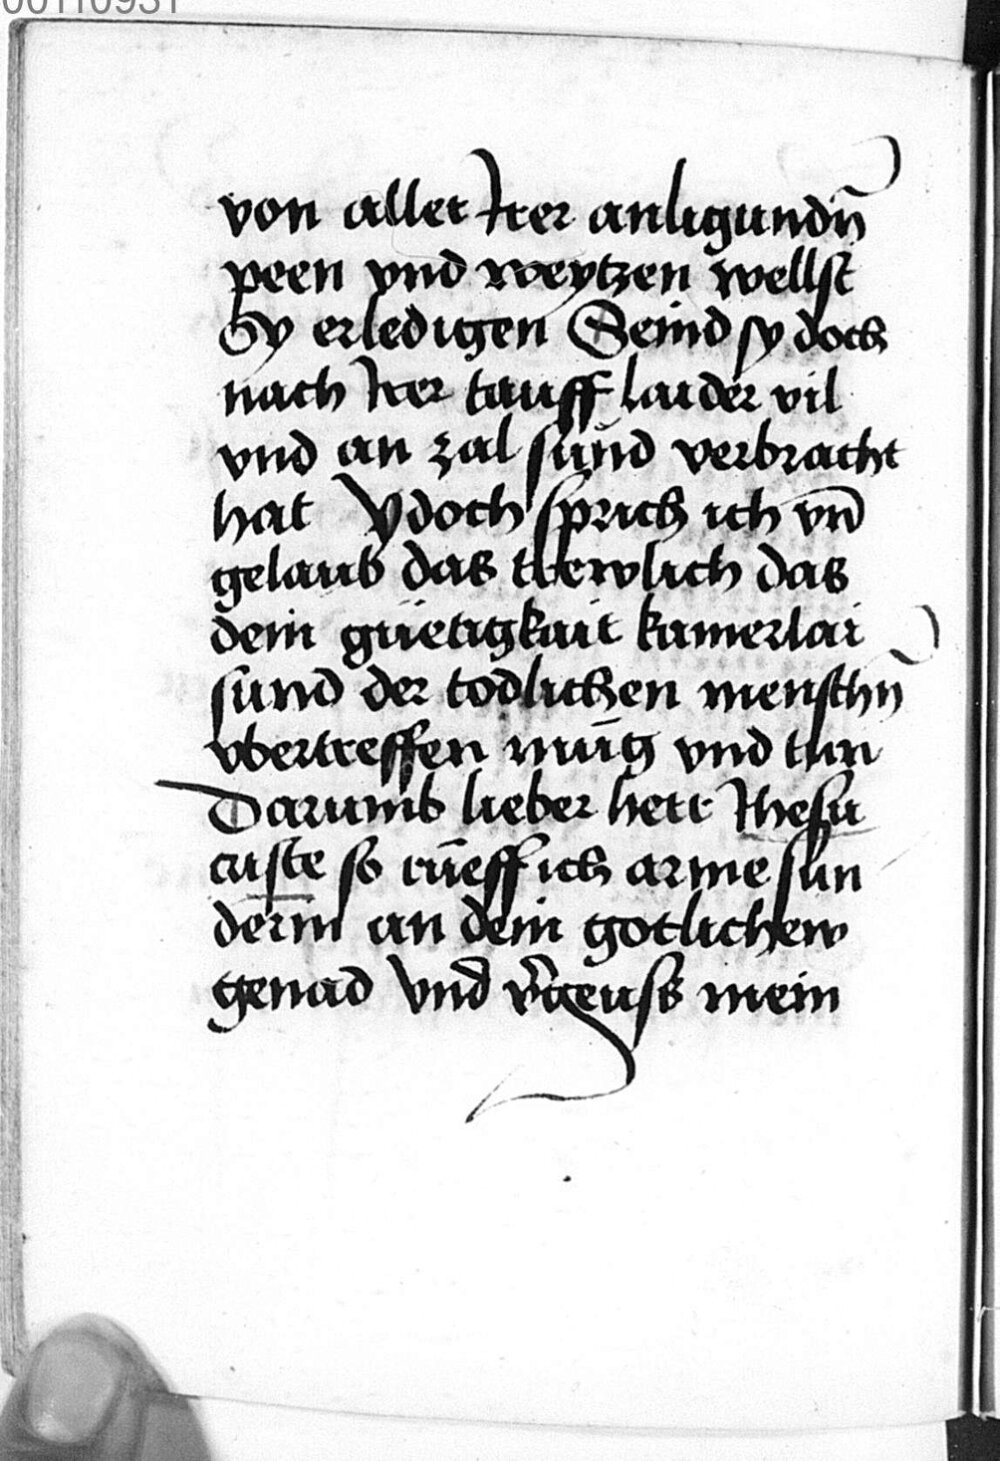 00110931
von aller Irer anligundn̄
peen vnd weytzen wellst
Sy erledigen Seind sy doch
nach Irer tauff laider vil
vnd an zal sünd verbracht
hat Ydoch sprich ich vnd̄
gelaub das trewlich das
dein güetigkait kainerlai
sund der todlichen menschn̄
vbertreffen müg vnd tun
Darumb lieber herr Ihesu
criste so rüeff ich arme sun
derin an dein gotlichew
genad Vnd v̄geuss mein